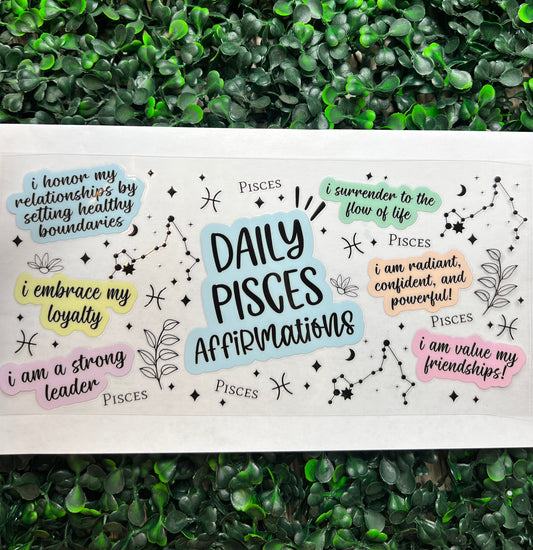 i honor my
relationships by
setting healthy
boundaries
PISCES
i surrender to the
flow of life
DAILY
PISCES
AFFiRMATiONS
PISCES
i embrace my
loyalty
i am radiant,
confident, and
powerful!
PISCES
i am a strong
leader
i am value my
friendships!
PISCES
PISCES